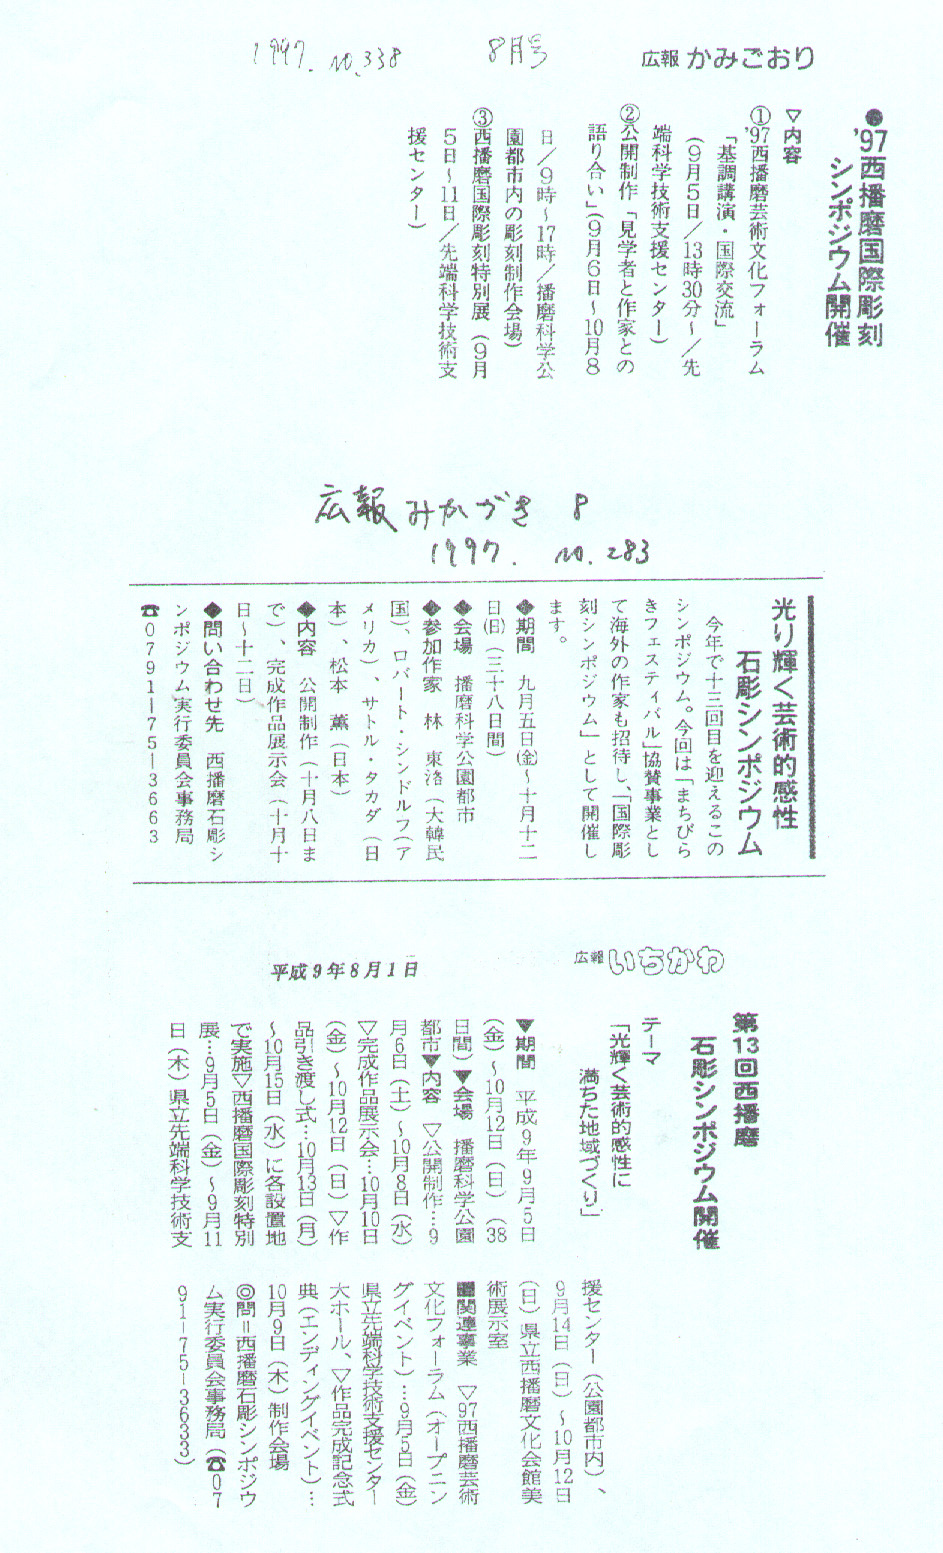 1997. no.338　8月号
広報 かみごおり
●'97西播磨国際彫刻
シンポジウム開催
▽内容
①'97西播磨芸術文化フォーラム
「基調講演・国際交流」
(9月5日／13時30分～／先
端科学技術支援センター)
②公開制作「見学者と作家との
語り合い」(9月6日～10月8
日／9時～17時／播磨科学公
園都市内の彫刻制作会場)
③西播磨国際彫刻特別展(9月
5日～11日／先端科学技術支
援センター)
広報みかづき 8
1997. no.283
光り輝く芸術的感性
石彫シンポジウム
今年で十三回目を迎えるこの
シンポジウム。今回は「まちびら
きフェスティバル」協賛事業とし
て海外の作家も招待し、「国際彫
刻シンポジウム」として開催し
ます。
◆期間　九月五日(金)～十月十二
日(日)(三十八日間)
◆会場　播磨科学公園都市
◆参加作家　林　東洛(大韓民
国)、ロバート・シンドルフ(ア
メリカ)、サトル・タカダ(日
本)、松本　薫(日本)
◆内容　公開制作(十月八日ま
で)、完成作品展示会(十月十
日～十二日)
◆問い合わせ先　西播磨石彫シ
ンポジウム実行委員会事務局
☎0791-75-3663
広報 いちかわ
平成9年8月1日
第13回西播磨
石彫シンポジウム開催
テーマ
「光輝く芸術的感性に
満ちた地域づくり」
▼期間　平成9年9月5日
(金)～10月12日(日)(38
日間)▼会場　播磨科学公園
都市▼内容　▽公開制作…9
月6日(土)～10月8日(水)
▽完成作品展示会…10月10日
(金)～10月12日(日)▽作
品引き渡し式…10月13日(月)
～10月15日(水)に各設置地
で実施▽西播磨国際彫刻特別
展…9月5日(金)～9月11
日(木)県立先端科学技術支
援センター(公園都市内)、
9月14日(日)～10月12日
(日)県立西播磨文化会館美
術展示室
■関連事業　▽97西播磨芸術
文化フォーラム(オープニン
グイベント)…9月5日(金)
県立先端科学技術支援センター
大ホール、▽作品完成記念式
典(エンディングイベント)…
10月9日(木)制作会場
◎問＝西播磨石彫シンポジウ
ム実行委員会事務局(☎07
91-75-3633)